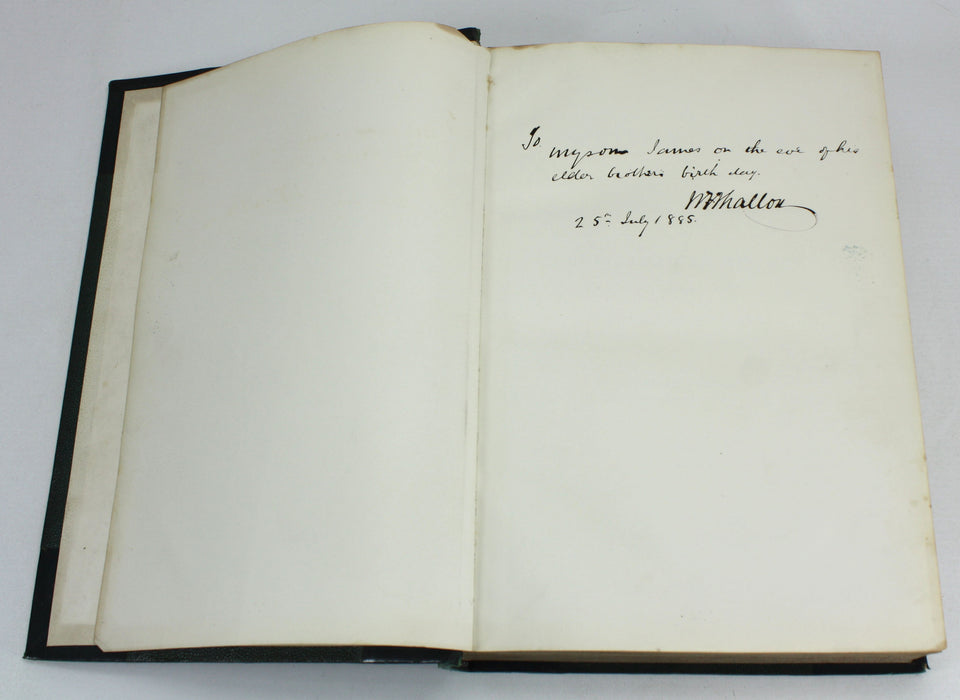 To my son James on the eve of his
elder brothers birth day.
25th July 1885.